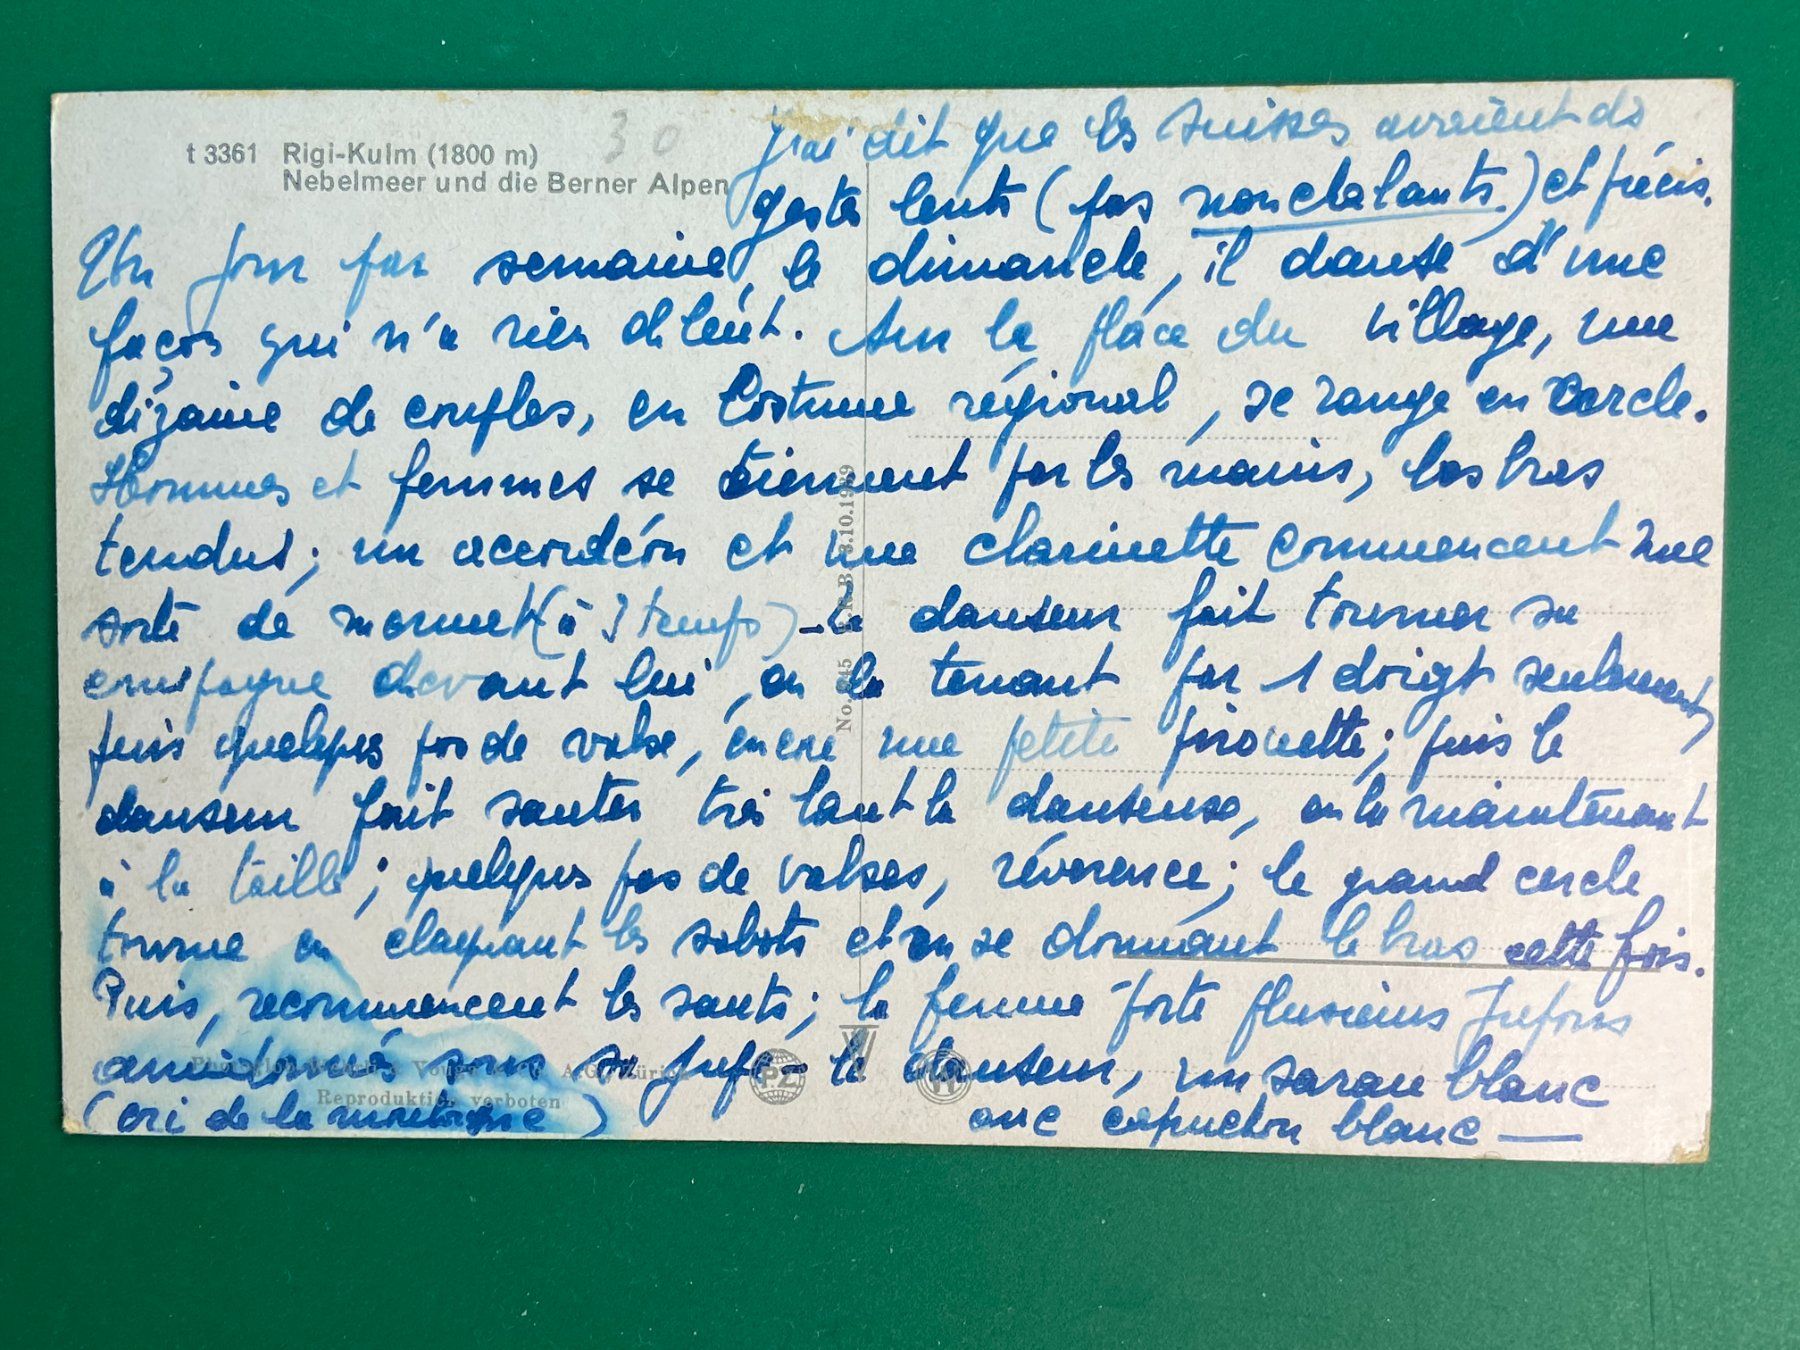 t 3361 Rigi-Kulm (1800 m)
Nebelmeer und die Berner Alpen
30
J'ai dit que les suisses avaient des
gestes lents (pas nonchalants.) et précis.
Un jour par semaine, le dimanche, il danse d'une
façon qui n'a rien de lent. Sur la place du village, une
dizaine de couples, en costume régional, se range en cercle.
Hommes et femmes se tiennent par les mains, les bras
tendus; un accordéon et une clarinette commencent une
sorte de menuet (à 3 temps) - le danseur fait tourner sa
compagne devant lui, en la tenant par 1 doigt seulement,
puis quelques pas de valse, encore une petite pirouette; puis le
danseur fait sauter très haut la danseuse, en la maintenant
à la taille; quelques pas de valses, révérence; le grand cercle
tourne en claquant les sabots et en se donnant le bras cette fois.
Puis, recommencent les sauts; la femme porte plusieurs jupons
amidonnés sous sa jupe - le danseur, un sarau blanc
(cri de la montagne) avec capuchon blanc —
No. 845 B. 3.10.1939
Vouga A.G. Zürich
Reproduktion verboten
PZ